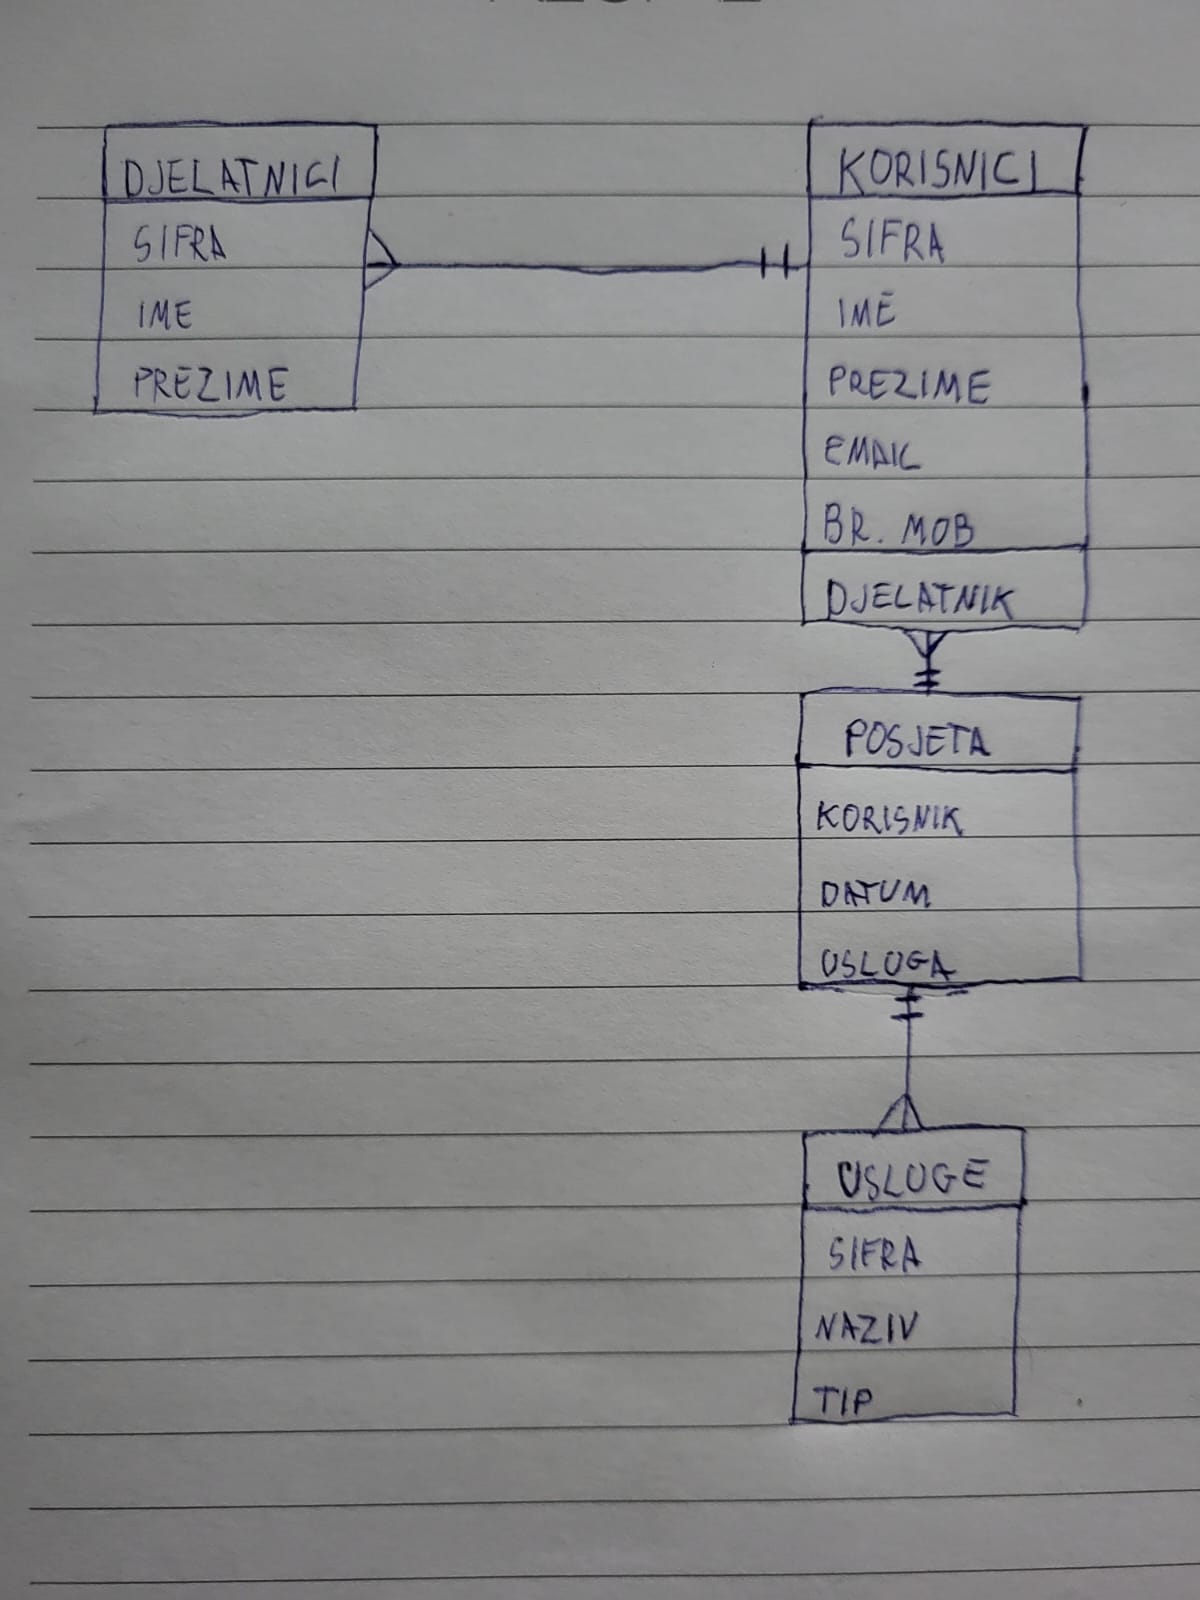 DJELATNICI
SIFRA
IME
PREZIME
KORISNICI
SIFRA
IME
PREZIME
EMAIL
BR. MOB
DJELATNIK
POSJETA
KORISNIK
DATUM
USLUGA
USLUGE
SIFRA
NAZIV
TIP